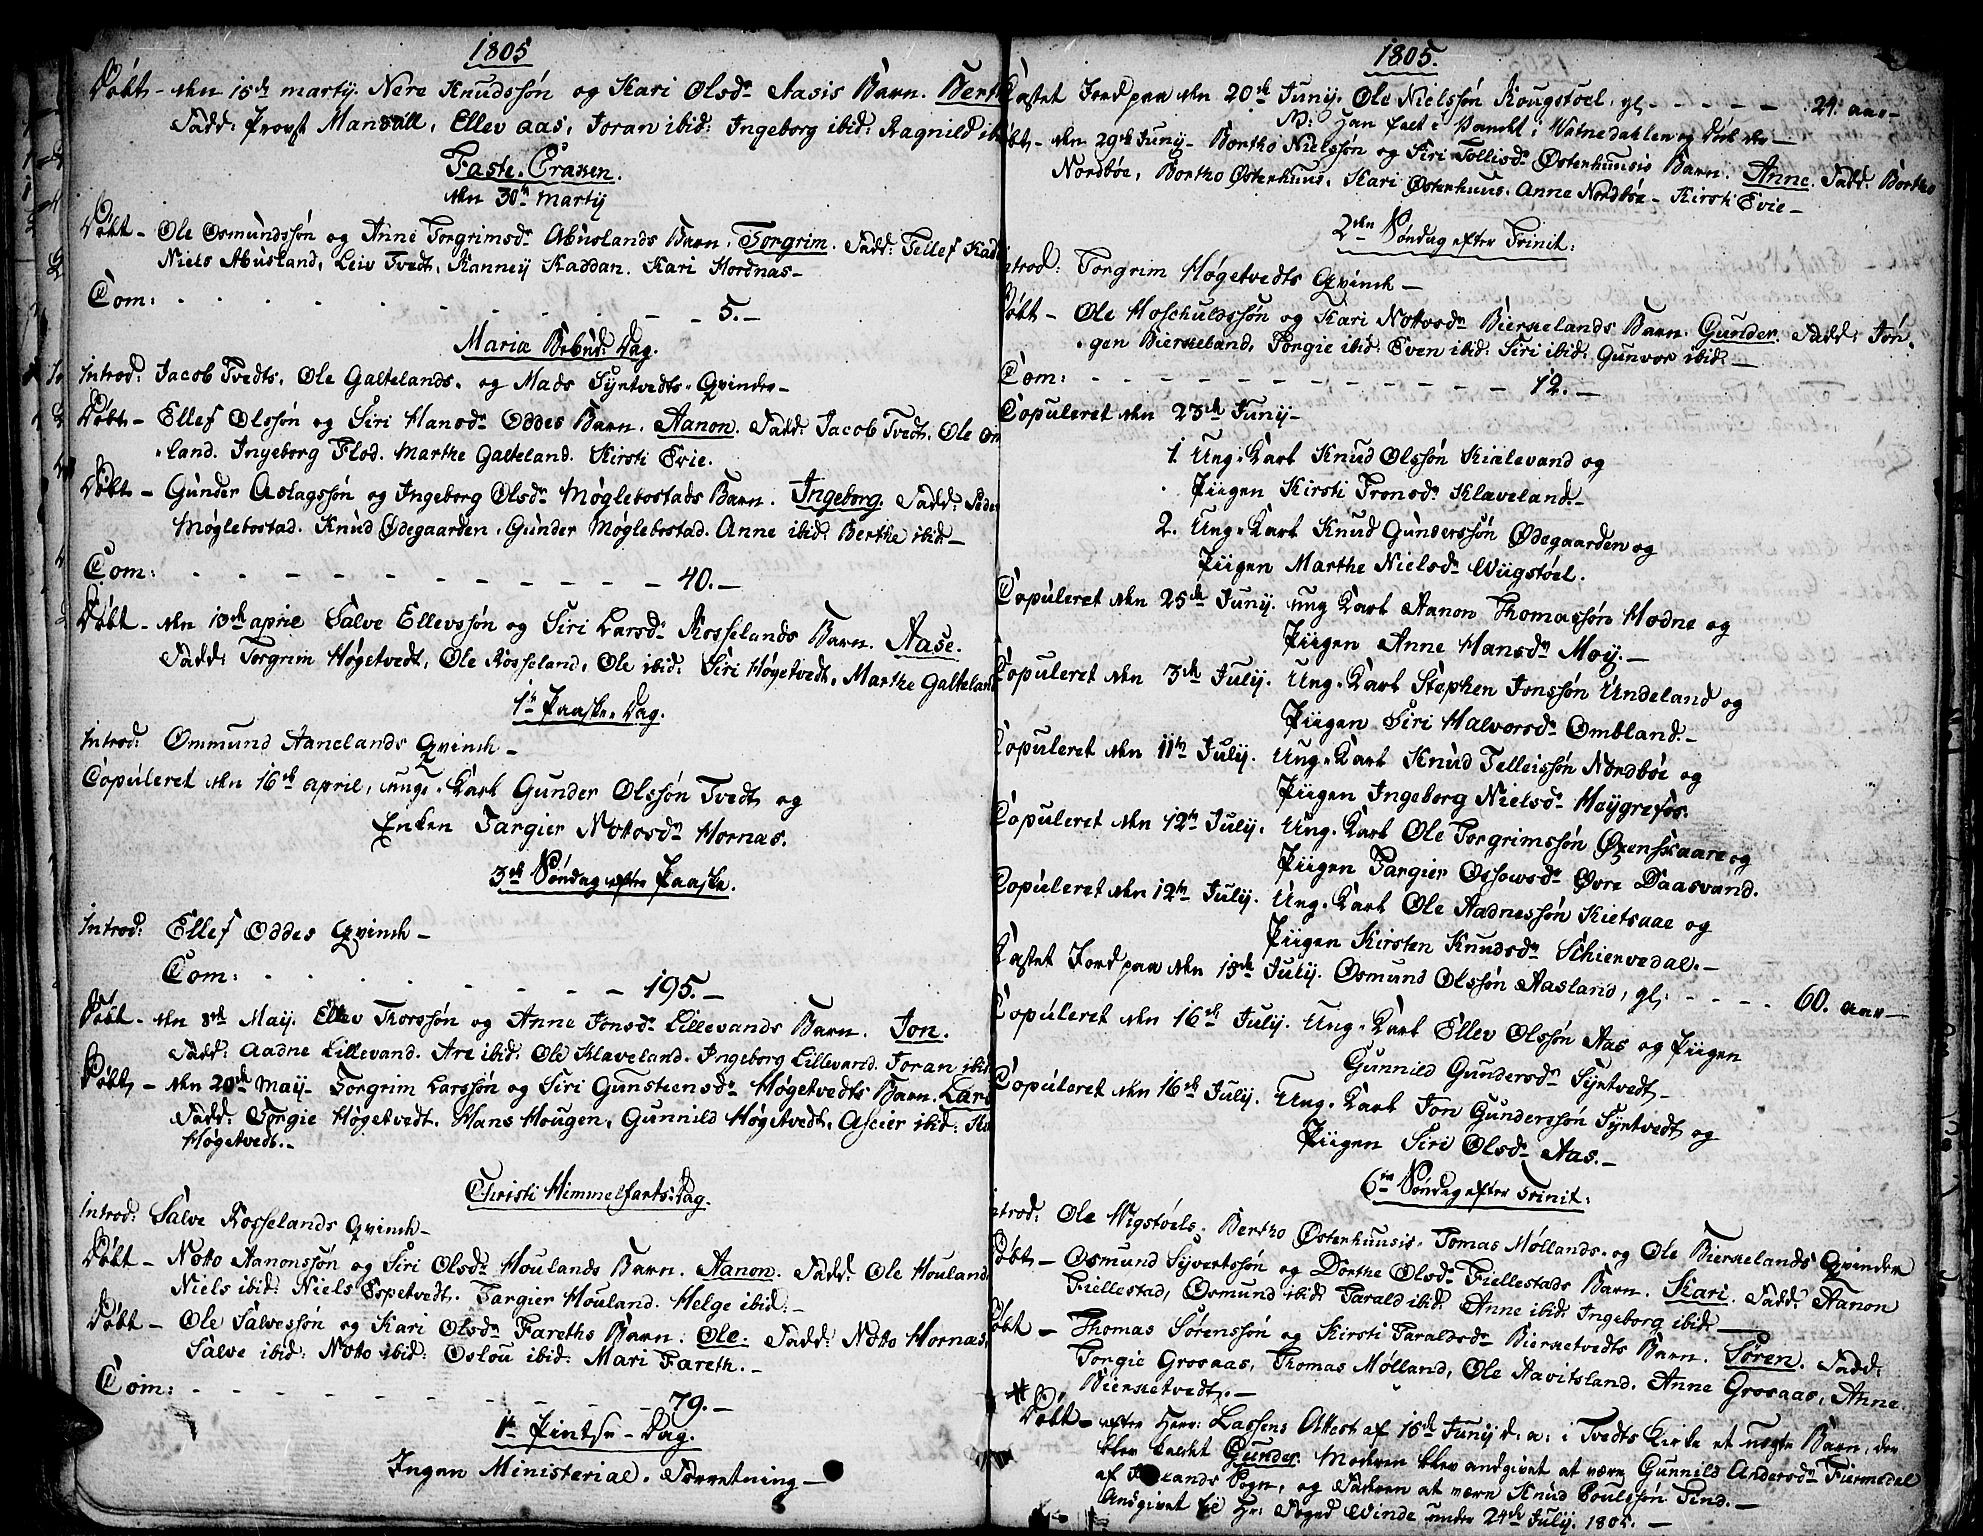 1805
Døbt – den 15de martij. Nere Knudssøn og Kari Olsdr Aasis Barn. Berthe
Fadd: Provst Mandall, Ellev Aas, Joran ibid: Ingeborg ibid: Ragnild ibid
Faste-Praxen.
den 30te Martij
Døbt – Ole Osmundssøn og Anne Torgrimsdr Abuslands Barn. Torgrim. Fadd: Tellef
Niels Abusland, Leiv Tvedt, Ranneij Kaddan. Kari Hordnas –
Com: – – – 5. –
Mariæ Bebud: Dag.
Introd: Jacob Tvedts, Ole Galtelands, og Mads Syrtvedts Qvinder –
Døbt – Ellef Olssøn og Siri Hansdr Oddes Barn. Aanon. Fadd: Jacob Tvedt, Ole
land. Ingeborg Flod. Marthe Galteland. Kirsti Evie.
Døbt – Gunder Aslagssøn og Ingeborg Olsdr Møglebostads Barn. Ingeborg. Fadd:
Møglebostad. Knud Ødegaarden, Gunder Møglebostad. Anne ibid: Berthe ibid –
Com: – – – 40. –
Døbt – den 13de april Salve Ellevssøn og Siri Larsdr Rosselands Barn. Aase.
Fadd: Torgrim Høgetvedt, Ole Rosseland, Ole ibid: Siri Høgetvedt, Marthe Galteland
1te Paaske-Dag.
Introd: Ommund Aanelands Qvinde –
Copuleret den 16de april, unge-Karl Gunder Olssøn Tvedt og
Enken Targier Notosdr Hornas.
3de Søndag efter Paaske.
Introd: Ellef Oddes Qvinde –
Com: – – – 195. –
Døbt – den 8de Maij. Ellev Torssøn og Anne Jonsdr Lillevands Barn. Jon.
Fadd: Aadne Lillevand. Are ibid: Ole Klaveland. Ingeborg Lillevand. Joran ibid
Døbt – den 20de Maij – Torgrim Larssøn og Siri Gunsteensdr Høgetvedts Barn. Lars
Fadd: Torgie Høgetvedt. Hans Hougen, Gunnild Høgetvedt, Ascier ibid:
Høgetvedt. –
Christi Himmelfarts: Dag.
Introd: Salve Rosselands Qvinde –
Døbt – Notto Aanonssøn og Siri Olsdr Houlands Barn. Aanon. Fadd: Ole Houland
Niels ibid: Niels Espetvedt. Targier Houland. Helge ibid: –
Døbt – Ole Salvessøn og Kari Olsdr Fareths Barn: Ole. Fadd: Notto Hornas,
Salve ibid: Noto ibid: Oslou ibid: Mari Fareth. –
Com: – – – 79. –
1te Pintse – Dag.
Ingen Ministerial-Forretning –
1805.
Castet Jord paa den 20de Junij. Ole Nielssøn Rougstoel, gl: – – – 24. aar –
NB: han falt i Vandet i Vatnedahlen og døde der –
Døbt – den 29de Junij – Bortho Nielssøn og Siri Tollisdr Østenhuusis Barn. Anne. Fadd: Bortho
Nordbøe, Bortho Østenhuus, Kari Østenhuus. Anne Nordbøe – Kirsti Evie –
2den Søndag efter Trinit:
Introd: Torgrim Høgetvedts Qvinde –
Døbt – Ole Hoschuldssøn og Kari Notosdr Bierkelands Barn. Gunder. Fadd: Jør-
gen Bierkeland, Torgie ibid: Even ibid: Siri ibid: Gunvor ibid: –
Com: – – – 12. –
Copuleret den 23de Junij –
1. Ung-Karl Knud Olssøn Kialevand og
Piigen Kirsti Tronsdr Klaveland. –
2. Ung-Karl Knud Gunderssøn Ødegaarden og
Piigen Marthe Nielsdr Wiigstøel.
Copuleret den 25de Junij. Ung Karl Aanon Thomassøn Hodne og
Piigen Anne Hansdr Moij. –
Copuleret den 3de Julij. Ung-Karl Stephen Jonssøn Undeland og
Piigen Siri Halvorsdr Ombland. –
Copuleret den 11te Julij. Ung-Karl Knud Telleissøn Nordbøe og
Piigen Ingeborg Nielsdr Høygrefos.
Copuleret den 12te Julij. Ung-Karl Ole Torgrimssøn Øxenskaare og
Piigen Targier Ossowsdr Øvre Daasvand.
Copuleret den 12te Julij. Ung-Karl Ole Aadnessøn Kietsaae og
Piigen Kirsten Knudsdr Schiervedal. –
Castet Jord paa den 15de Julij. Osmund Olssøn Aasland, gl: – – – 60. aar –
Copuleret den 16de Julij. Ung-Karl Ellev Olssøn Aas og Piigen
Gunnild Gundersdr Syrtvedt –
Copuleret den 16de Julij. Ung-Karl Jon Gunderssøn Syrtvedt og
Piigen Siri Olsdr Aas. –
6te Søndag efter Trinit:
Introd: Ole Wigstøels, Bertho Østenhuusis, Tomas Møllands, og Ole Bierkelands Qvinder
Døbt – Osmund Syvertssøn og Dorthe Olsdr Fiellestads Barn. Kari. Fadd: Aanon
Fiellestad, Osmund ibid: Tarald ibid: Anne ibid: Ingeborg ibid: –
Døbt – Thomas Sørenssøn og Kirsti Taraldsdr Bierketvedts Barn. Søren. Fadd:
Torgie Grosaas, Thomas Mølland, Ole Aavitsland. Anne Grosaas, Anne
Bierketvedt. –
Døbt – efter Herr: Lassens Attest af 15de Junij d: a: i Tvedts Kirke et uægte Barn, der
blev kaldt Gunder. Moderen blev angivet at være Gunnild Andersdr Fiermedal
af Sogn, og Faderen at være Knud Poulssøn Tind. –
Angivet til Hr: Foged Winde under 24de Julij. 1805. –